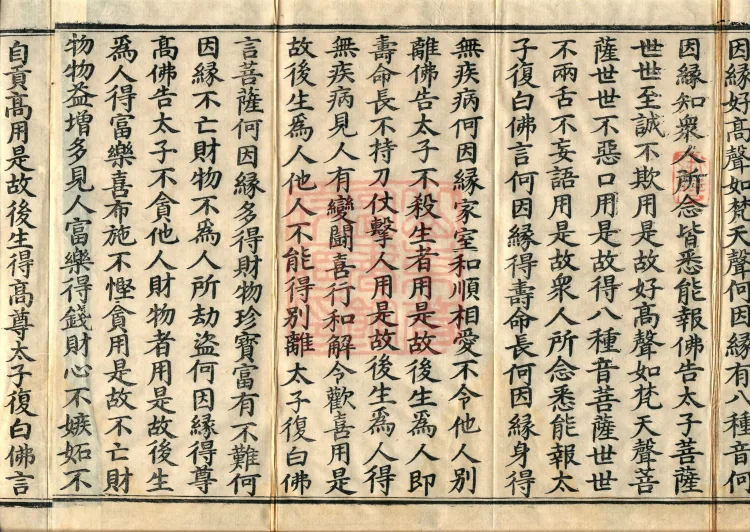 因緣好高聲如梵天聲何因緣有八種音何
因緣知衆人所念皆悉能報佛告太子菩薩
世世至誠不欺用是故好高聲如梵天聲菩
薩世世不惡口用是故得八種音菩薩世世
不兩舌不妄語用是故衆人所念悉能報太
子復白佛言何因緣得壽命長何因緣身得
無疾病何因緣家室和順相愛不令他人別
離佛告太子不殺生者用是故後生爲人即
壽命長不持刀仗擊人用是故後生爲人得
無疾病見人有變鬪喜行和解令歡喜用是
故後生爲人他人不能得別離太子復白佛
言菩薩何因緣多得財物珍寶富有不難何
因緣不亡財物不爲人所劫盜何因緣得尊
高佛告太子不貪他人財物者用是故後生
爲人得富樂喜布施不慳貪用是故不亡財
物物益增多見人富樂得錢財心不嫉妬不
自貢高用是故後生得高尊太子復白佛言